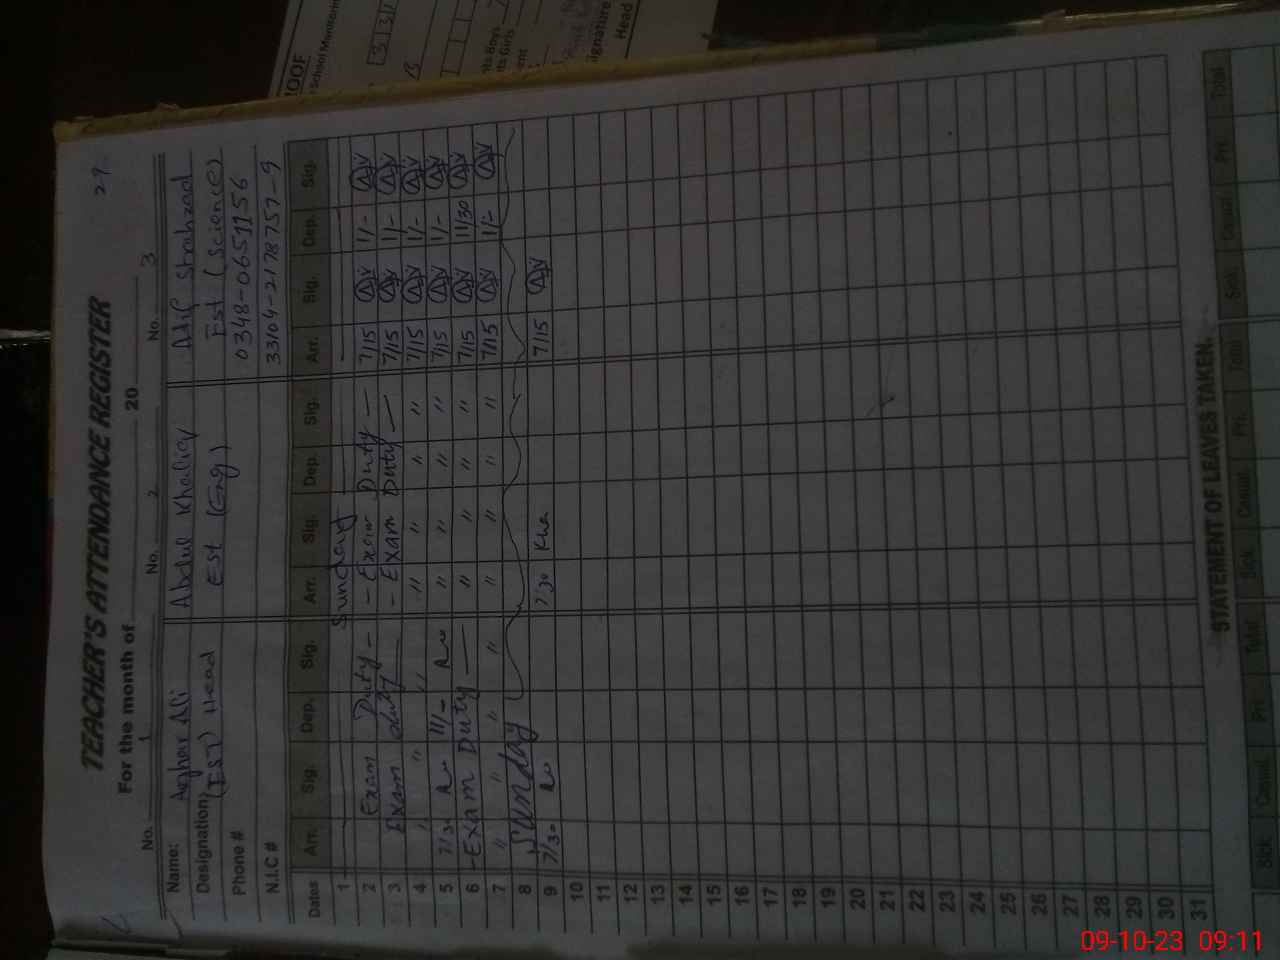 29
TEACHER'S ATTENDANCE REGISTER
For the month of 20
No. 1 No. 2 No. 3
Name: Asghar Ali Abdul Khaliq Atif Shahzad
Designation (EST) Head Est (Eng) Est (Science)
Phone # 0348-0651156
N.I.C # 33104-2178757-9
Dates Arr. Sig. Dep. Sig. Arr. Sig. Dep. Sig. Arr. Sig. Dep. Sig.
1 Sunday
2 Exam Duty - - Exam Duty - 7/15 1/-
3 Exam duty - Exam Duty - 7/15 1/-
4 " " " " " " " 7/15 1/-
5 7/30 11/- " " " " 7/15 1/-
6 - Exam Duty - " " " " 7/15 11/30
7 " " " " " " " " 7/15 1/-
8 Sunday
9 7/30 7/30 Kha 7/15
10
11
12
13
14
15
16
17
18
19
20
21
22
23
24
25
26
27
28
29
30
31
STATEMENT OF LEAVES TAKEN.
Sick Casual Pri Total Sick Casual Pri. Total Sick Casual Pri. Total
ROOF
School Monitoring
3 3 1
nts Boys
nts Girls
ent
Signature
Head
09-10-23 09:11